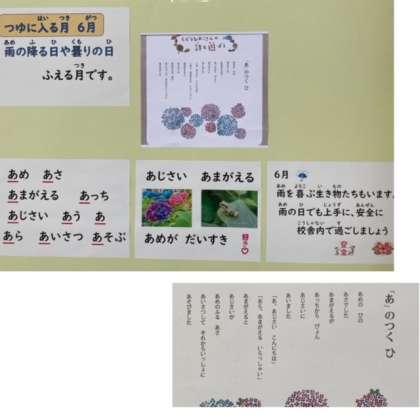 つゆに入る月 6月
雨の降る日や曇りの日
ふえる月です。
「あ」のつくひ
あめ あさ
あまがえる あっち
あじさい あう あ
あら あいさつ あそぶ
あじさい あまがえる
あめが だいすき
6月
雨を喜ぶ生き物たちもいます。
雨の日でも上手に、安全に
校舎内で過ごしましょう
安全
「あ」のつく ひ
あめの ひの
あさでした
あまがえるが
あっちから ぴょん
あじさいに
あいました
「あ、あじさい こんにちは」
「あら、あまがえる いらっしゃい」
あまがえると
あじさいが
あめのふる あさ
あいさつして それからいっしょに
あそびました